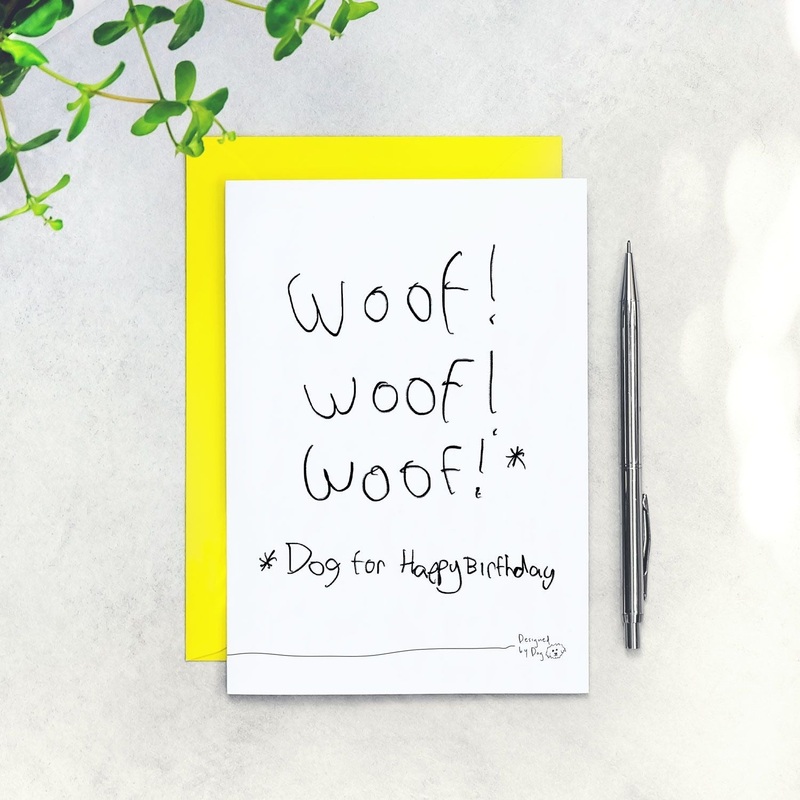 Woof!
woof!
Woof!*
* Dog for Happy Birthday
Designed
by Dog